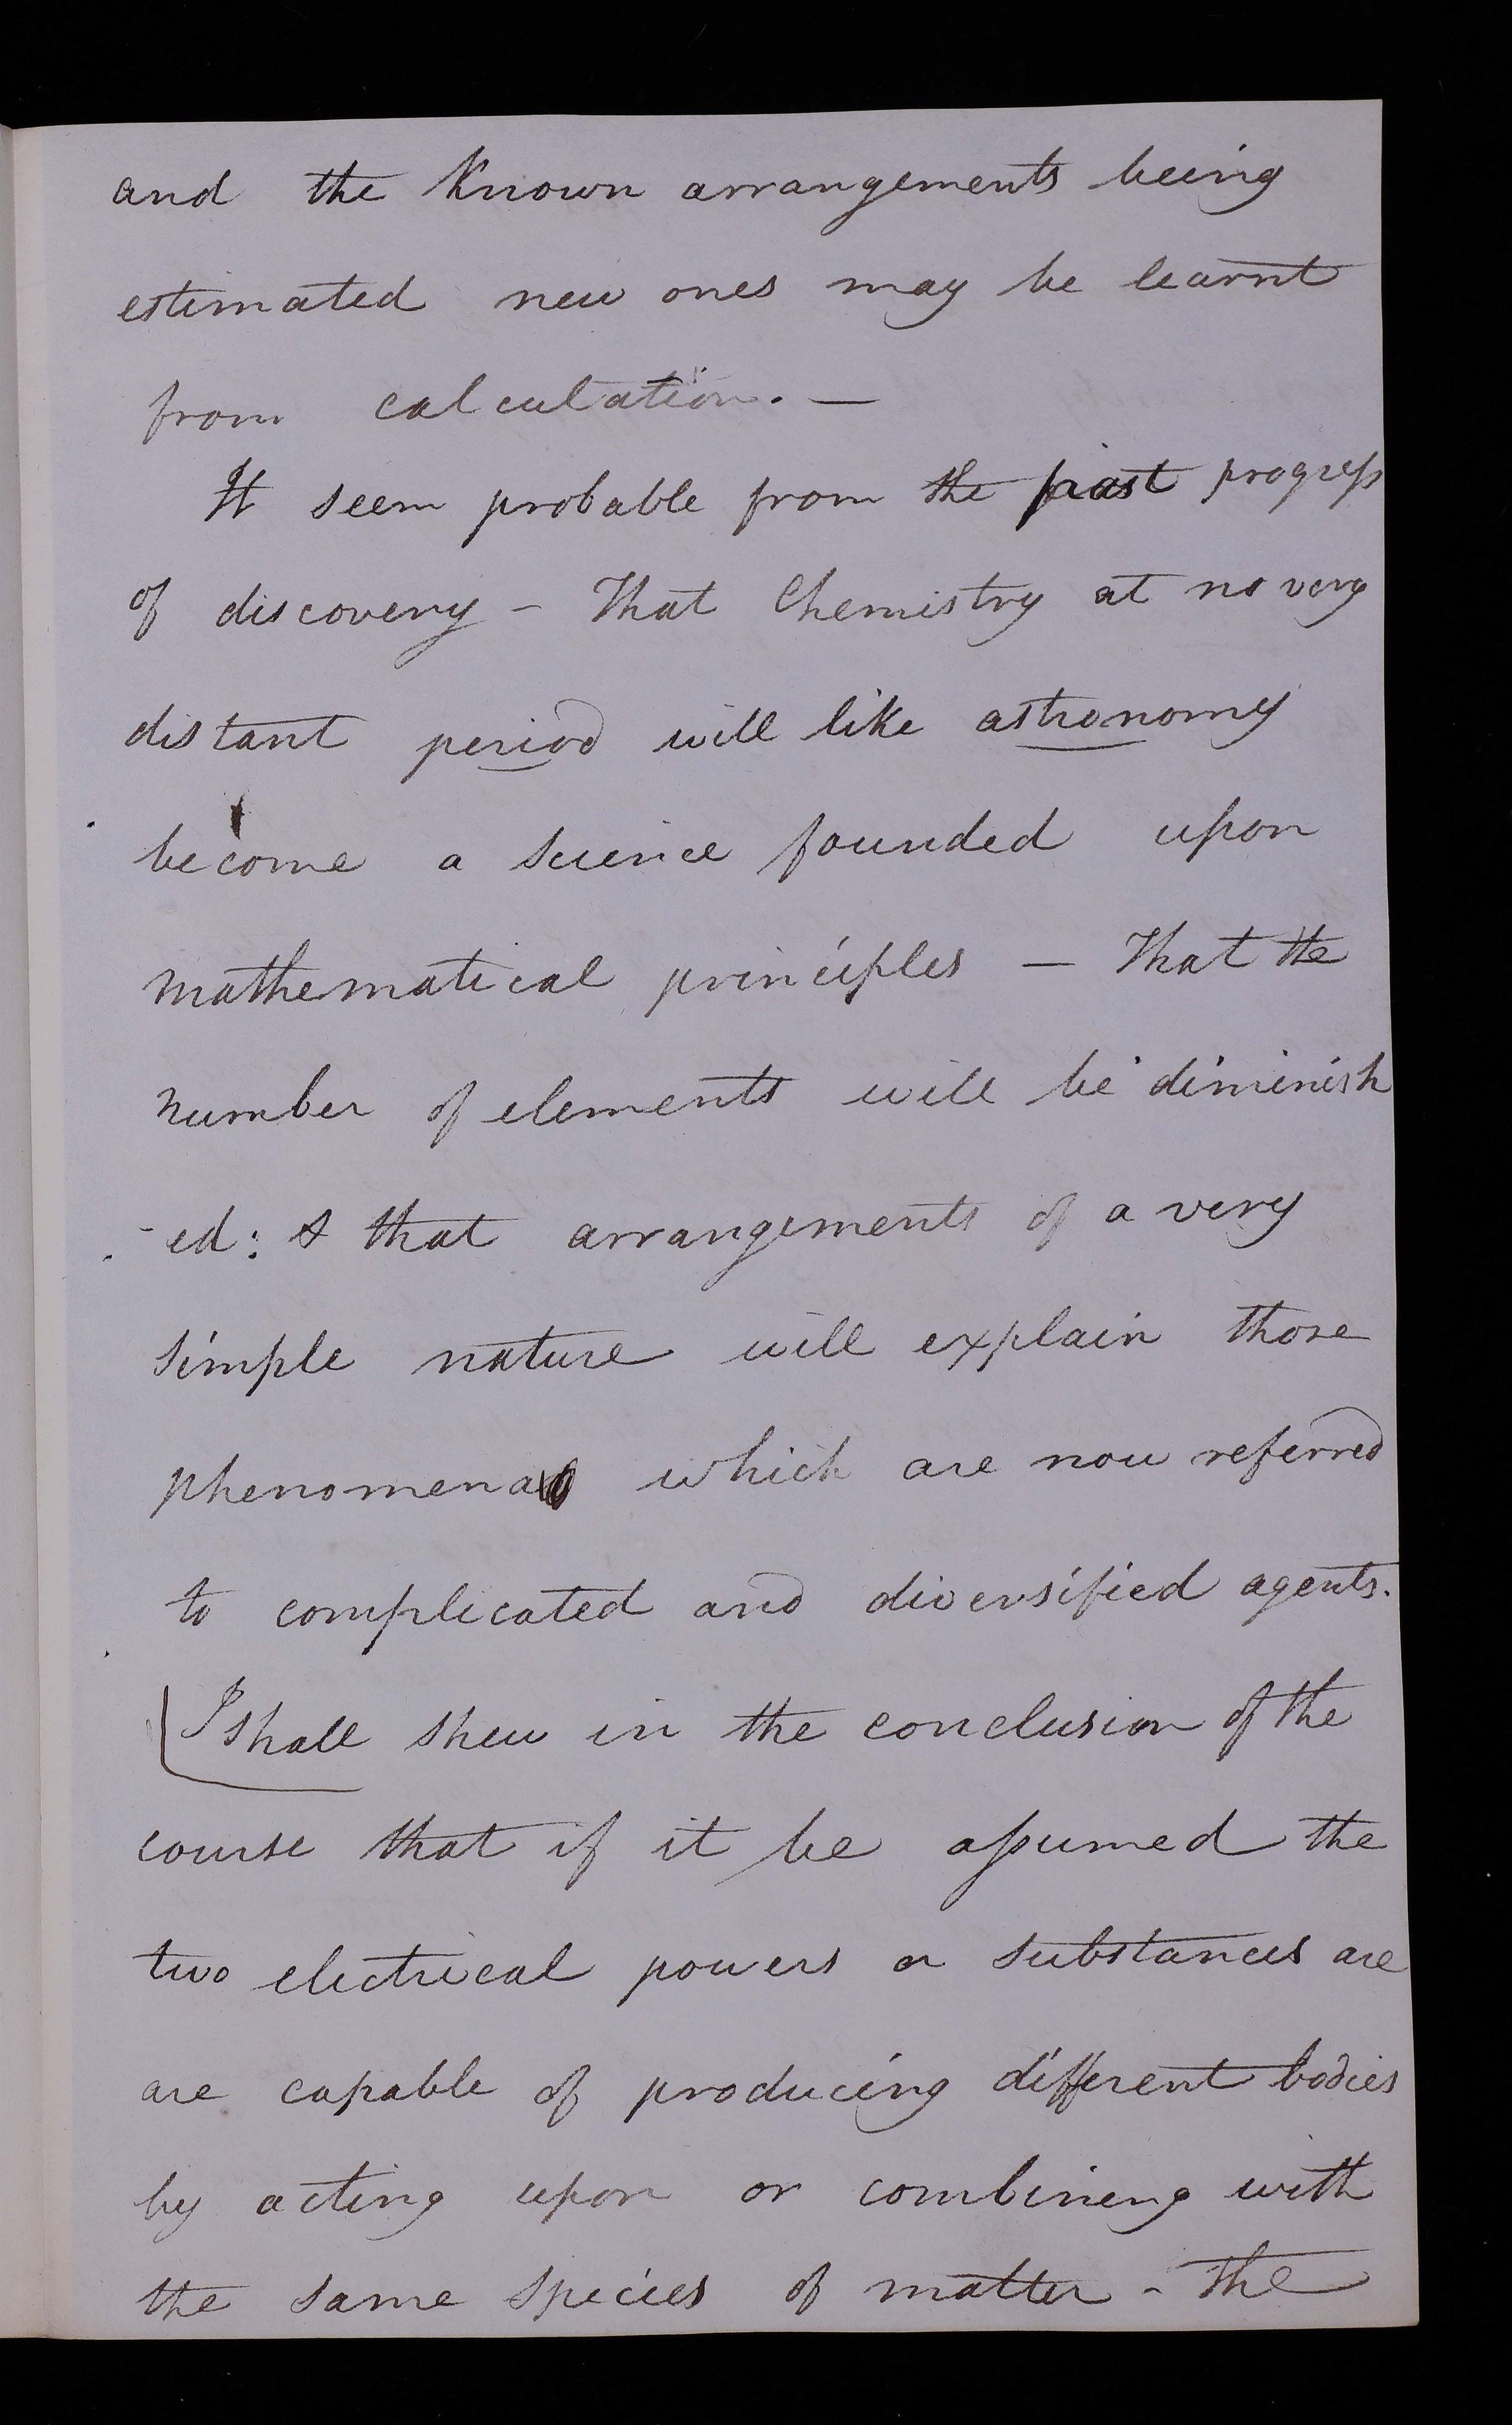 and the Known arrangements being
estimated new ones may be learnt
from calculation. —
It seem probable from the past progress
of discovery – That Chemistry at no very
distant period will like astronomy
become a science founded upon
mathematical principles – That the
number of elements will be diminish
-ed: & that arrangements of a very
simple nature will explain those
phenomena which are now referred
to complicated and diversified agents.
I shall shew in the conclusion of the
course that if it be assumed the
two electrical powers or substances are
are capable of producing different bodies
by acting upon or combining with
the same species of matter – The